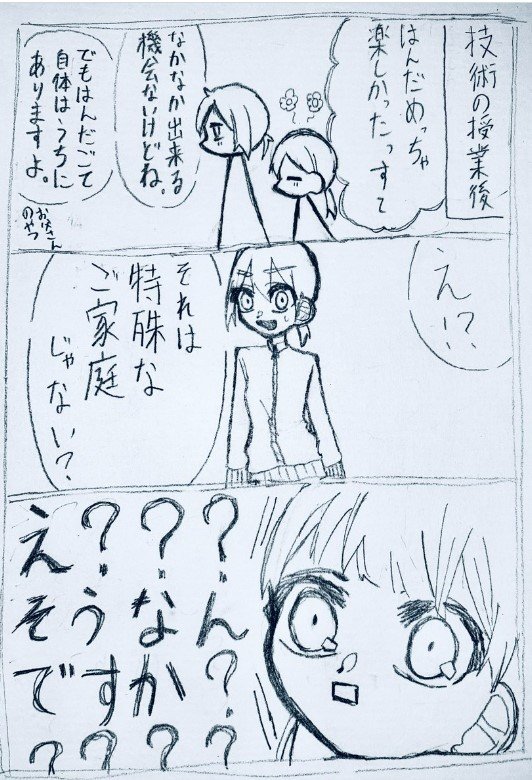 技術の授業後
はんだめっちゃ
楽しかったっすて
なかなか出来る
機会ないけどね。
でもはんだごて
自体はうちに
ありますよ。
お父さん
のやつ
え!?
それは
特殊な
ご家庭
じゃない?
え???
そうなん
ですか?
????